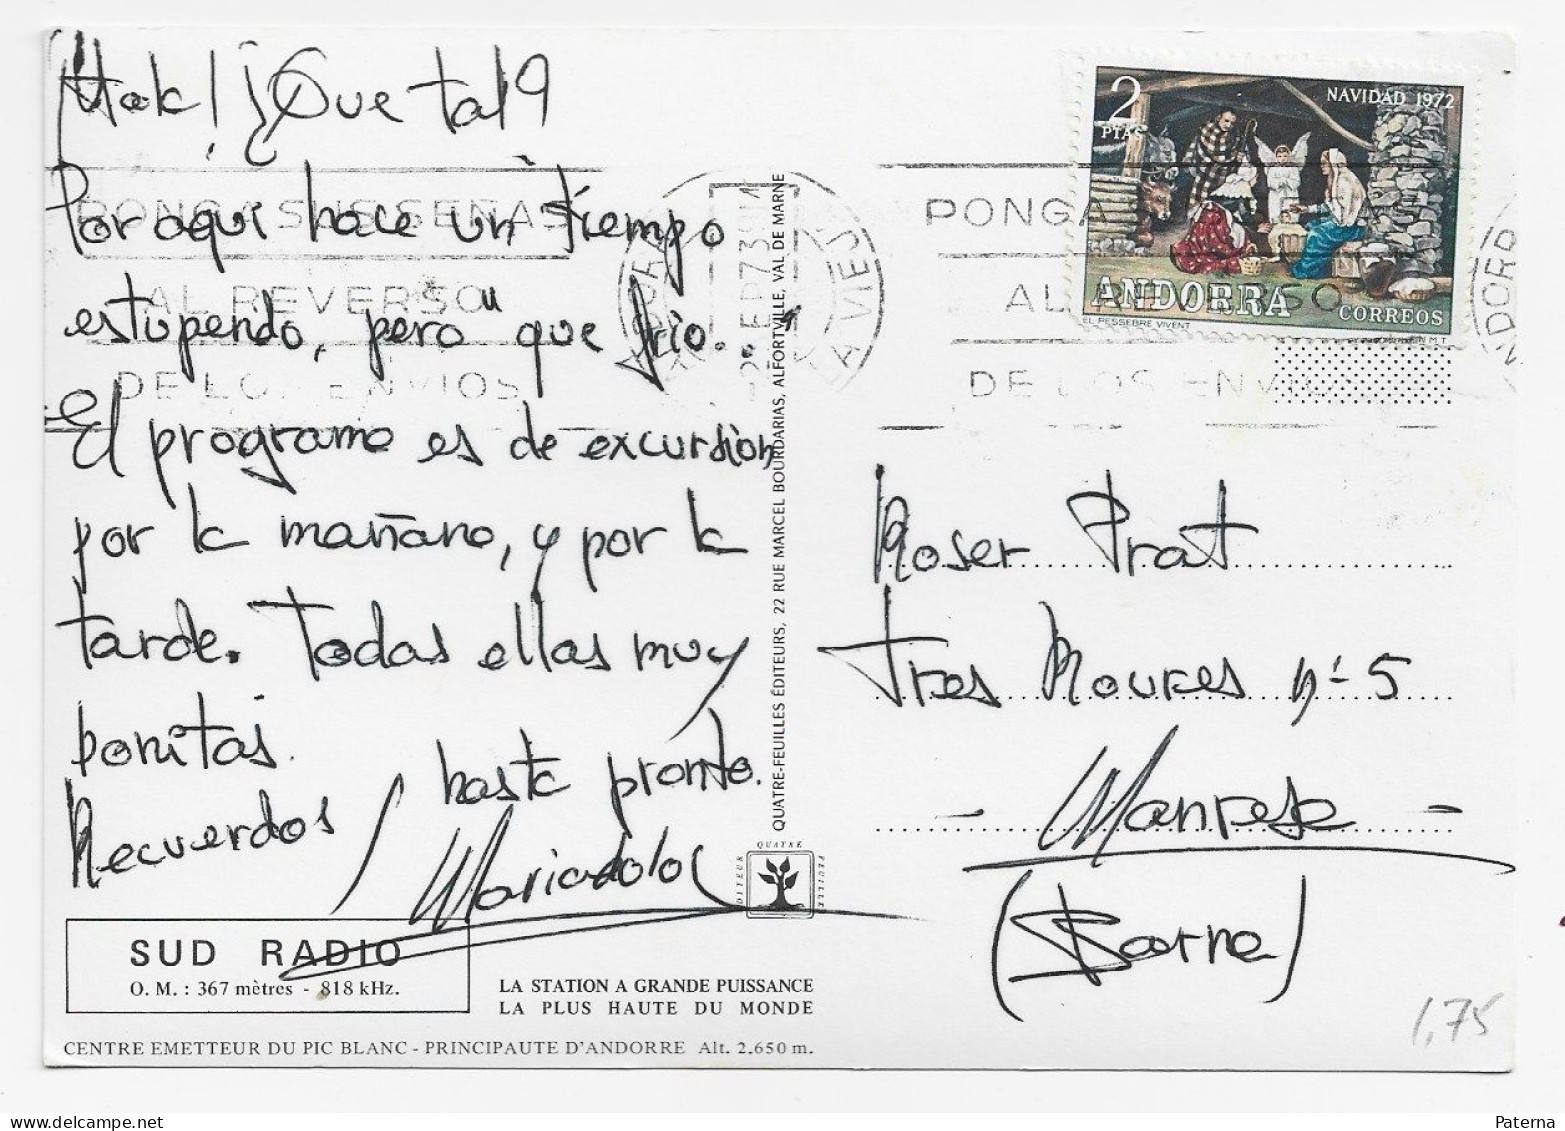 ¡Hola! ¿Que tal?
Por aqui hace un tiempo
estupendo, pero "que frio.."
El programa es de excursion
por la mañana, y por la
tarde. Todas ellas muy
bonitas.
Recuerdos / hasta pronto.
Mariadolo
SUD RADIO
O. M. : 367 mètres - 818 kHz.
LA STATION A GRANDE PUISSANCE
LA PLUS HAUTE DU MONDE
CENTRE EMETTEUR DU PIC BLANC - PRINCIPAUTE D'ANDORRE Alt. 2.650 m.
QUATRE-FEUILLES ÉDITEURS, 22 RUE MARCEL BOURDARIAS, ALFORTVILLE, VAL DE MARNE
EDITEUR QUATRE FEUILLES
PONGA SUS SEÑAS
AL REVERSO
DE LOS ENVIOS
PONGA SUS SEÑAS
AL REVERSO
DE LOS ENVIOS
2 PTAS
NAVIDAD 1972
ANDORRA
CORREOS
EL PESSEBRE VIVENT
Roser Prat
Tres Roures nº 5
- Manresa -
(Barna)
1,75
Paterna